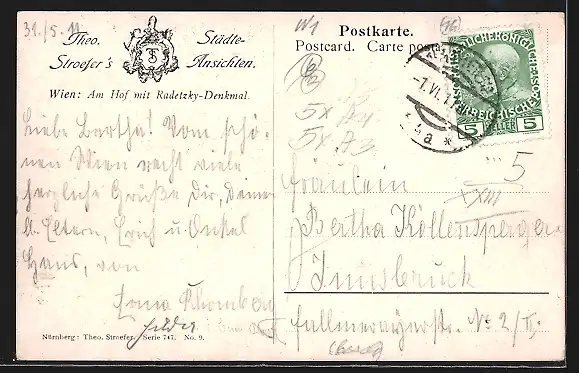 31./5. 11
Theo. Stroefer's
TS
Städte-Ansichten.
Wien: Am Hof mit Radetzky-Denkmal.
Liebe Bertha! Vom schö-
nen Wien recht viele
herzliche Grüße Dir, Deinen
l. Eltern, Erich u. Onkel
Hans, von
Erna
Nürnberg: Theo. Stroefer. Serie 747. No. 9.
Postkarte.
Postcard. Carte post
5
5
HELLER
5x
5x A3
5
XXIII
Fräulein
Bertha Kollensperger
Innsbruck
Fallmerayerstr. No 2/II.